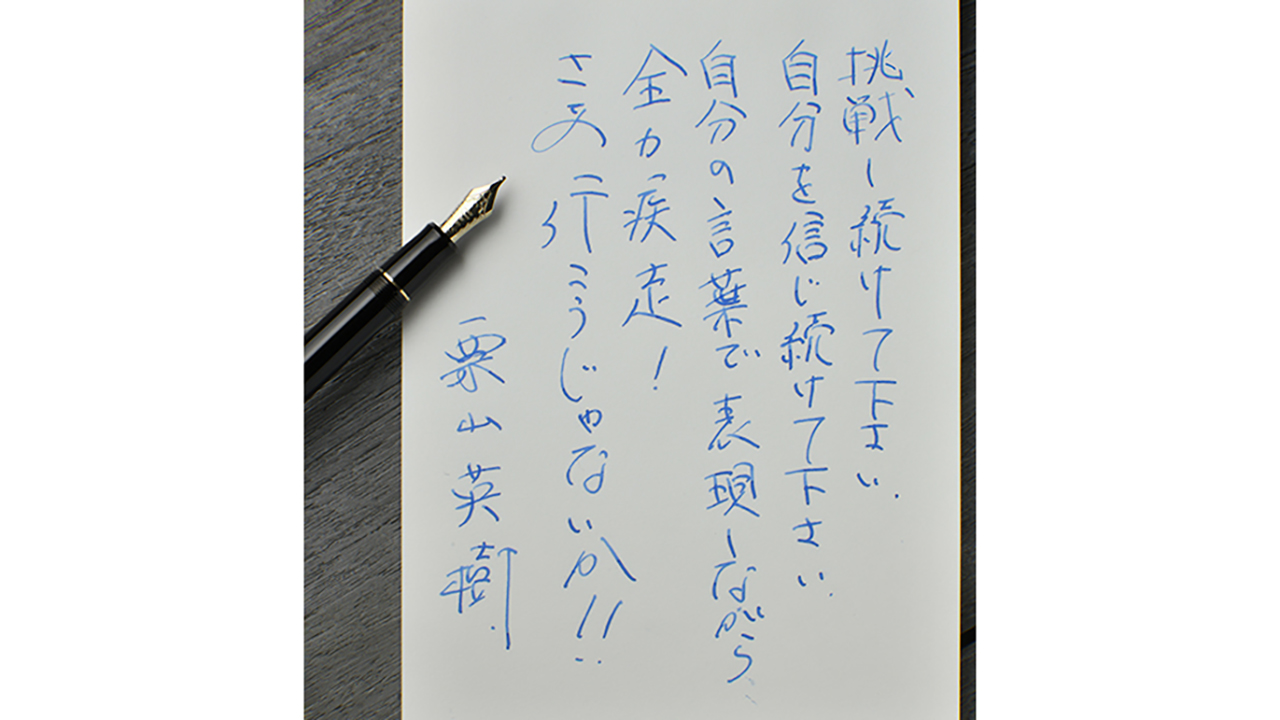 挑戦し続けて下さい.
自分を信じ続けて下さい.
自分の言葉で表現しながら、
全力疾走!
さあ行こうじゃないか!!
栗山英樹